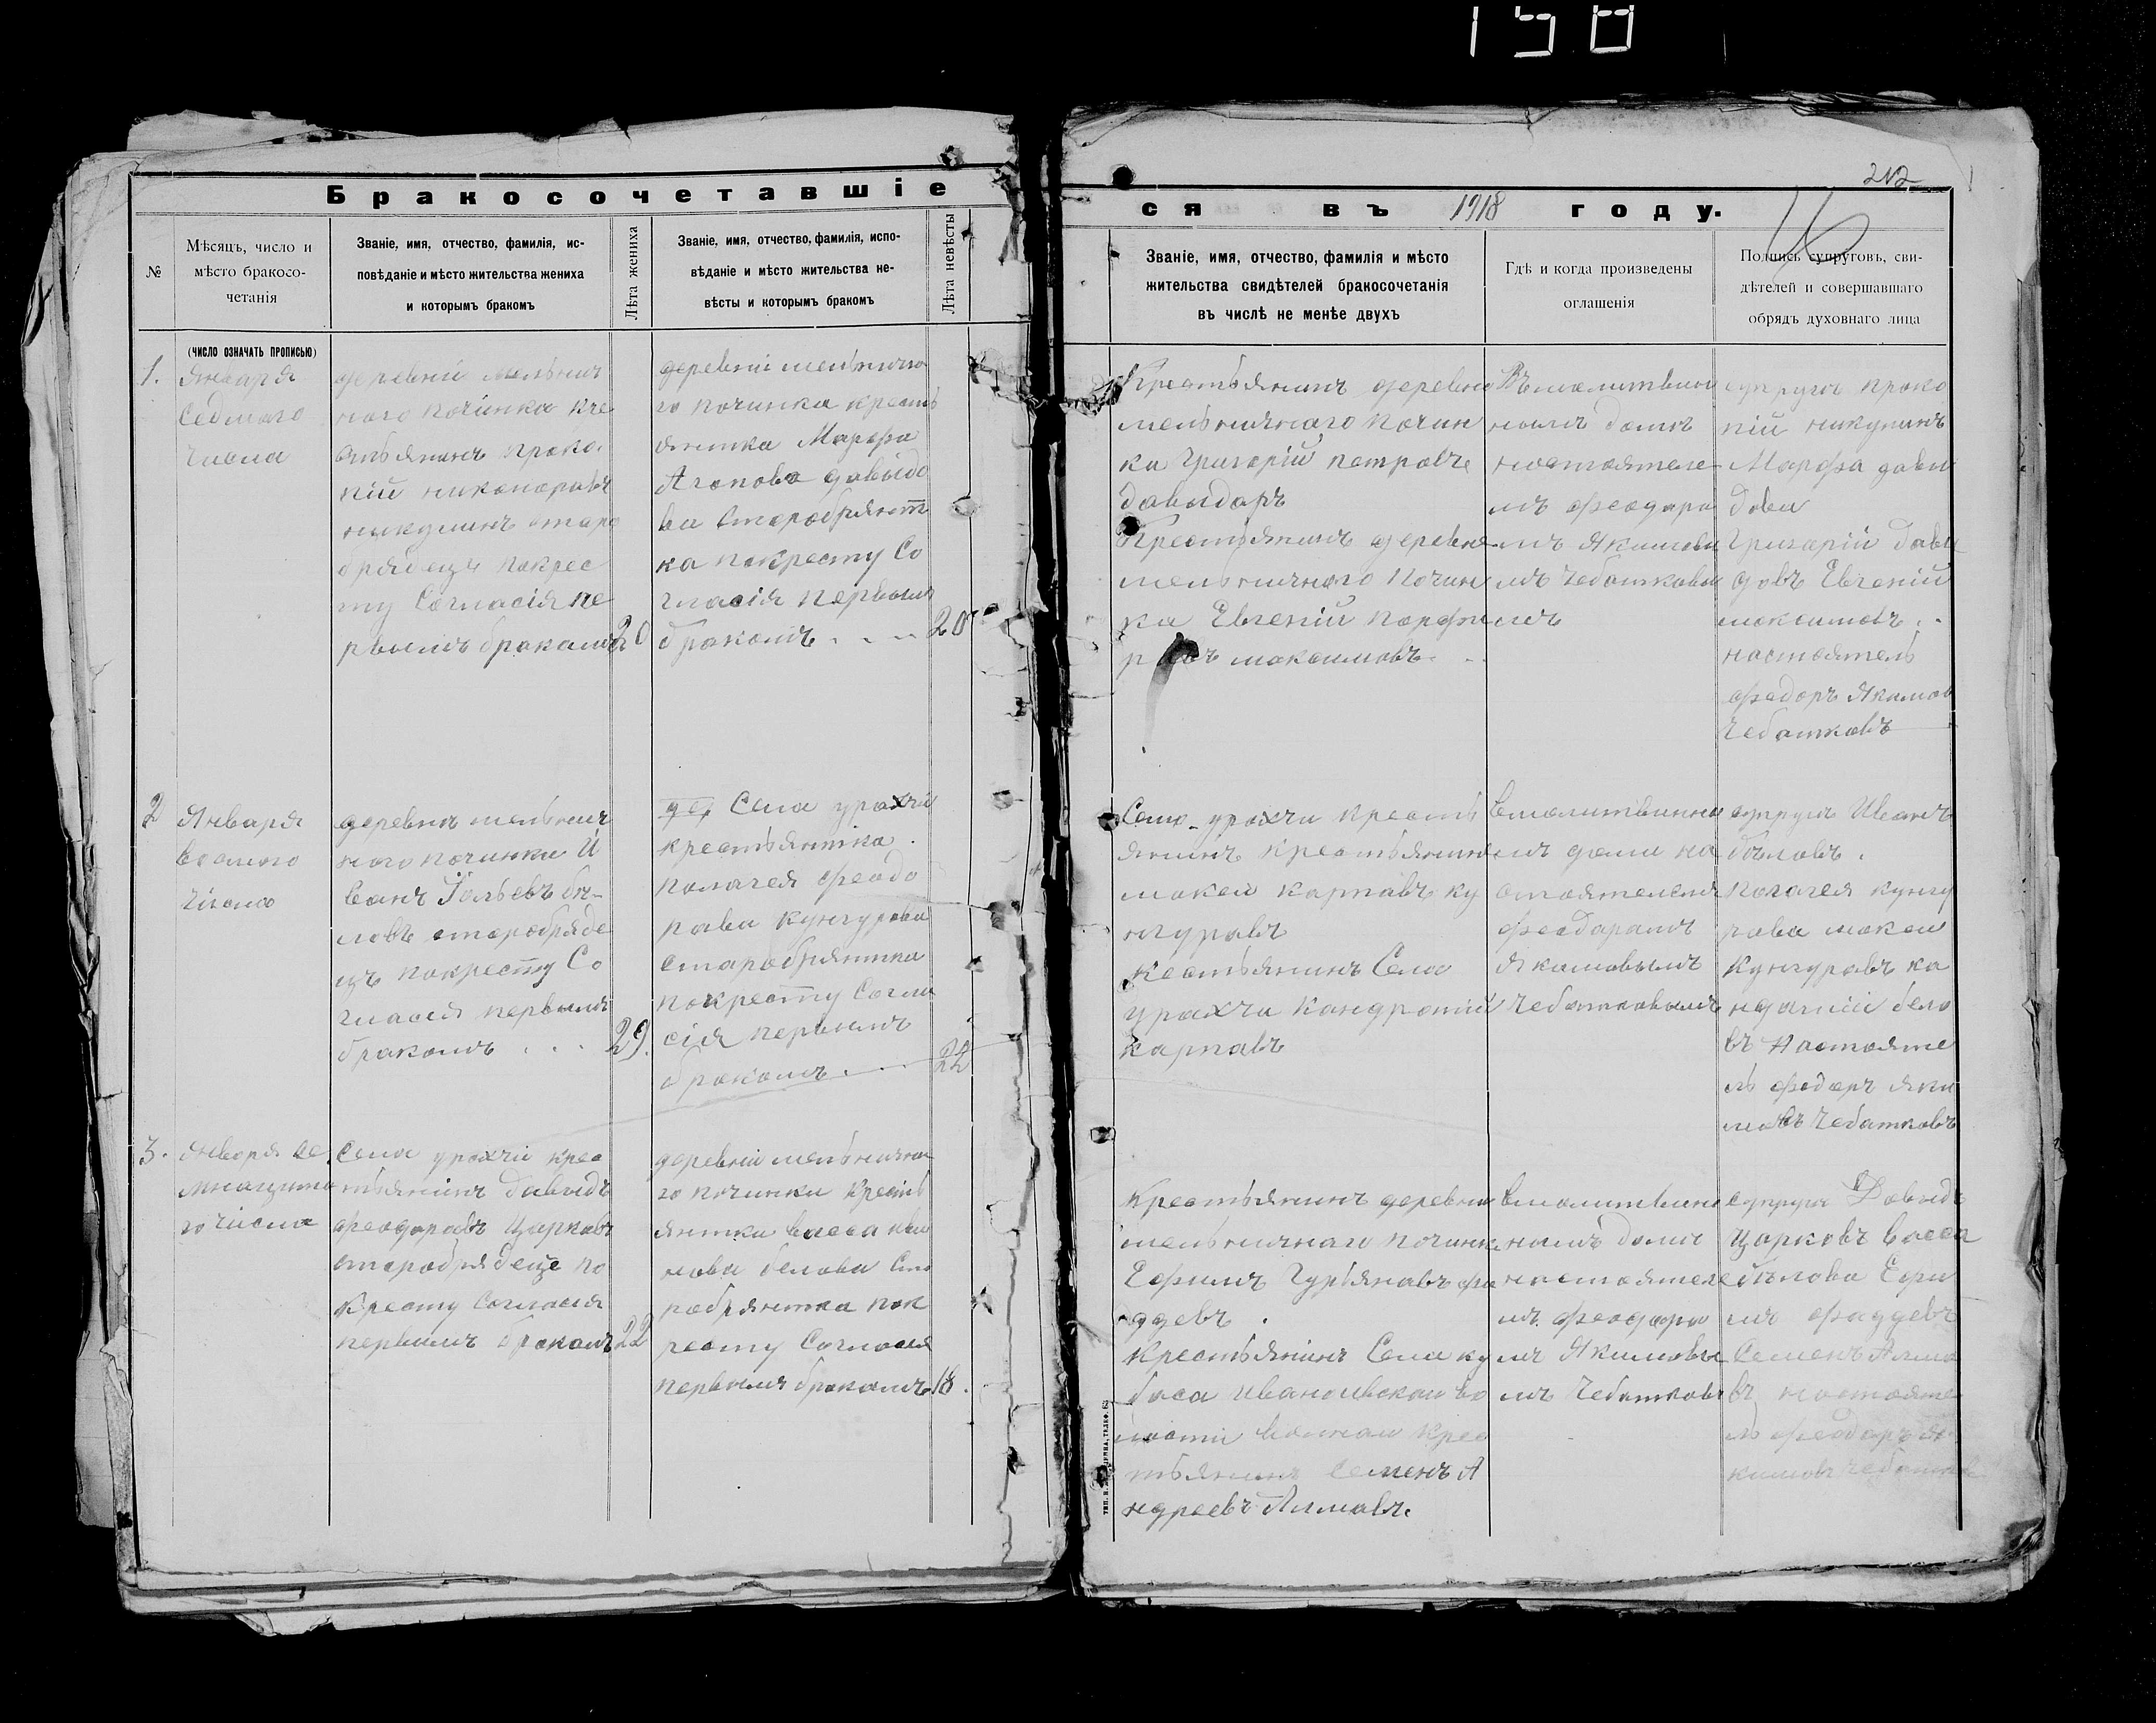 150
212
16
Бракосочетавшіе
ся въ 1918 году.
№
Мѣсяцъ, число и
мѣсто бракосо-
четанія
Званіе, имя, отчество, фамилія, ис-
повѣданіе и мѣсто жительства жениха
и которымъ бракомъ
Лѣта жениха
Званіе, имя, отчество, фамилія, испо-
вѣданіе и мѣсто жительства не-
вѣсты и которымъ бракомъ
Лѣта невѣсты
Званіе, имя, отчество, фамилія и мѣсто
жительства свидѣтелей бракосочетанія
въ числѣ не менѣе двухъ
Гдѣ и когда произведены
оглашенія
Подпись супруговъ, сви-
дѣтелей и совершавшаго
обрядъ духовнаго лица
(число означать прописью)
1.
Января
Седмого
числа
деревни мельнич
ного починка кре
стьянинъ проко
пій никоноравъ
никулинъ старо
брядецъ покрес
ту Согласія пе
рвымъ бракамъ
20
деревни мельнично
го починка кресть
янтка Марфа
Агапова давыдо
ва Старобрянт
ка покресту Со
гласія первымъ
бракомъ
20
Крестьянинъ деревни
мельничнаго почин
ка Григорій петровъ
давыдовъ
Крестьянинъ деревни
мельничного почин
ка Евгеній порфи
ровъ максимовъ
Въмолитвин
номъ доми
настоятеле
мъ феодора
мъ Якимовы
мъ чеботковы
мъ
супругъ проко
пій никулинъ
Марфа давы
дова
Григарій давы
довъ Евгеній
максимовъ
настоятель
федоръ Якимов
Чеботковъ
2
Января
восмого
числа
деревни мельнич
ного починка И
ванъ бѣ-
ловъ старобряде
цъ покресту Со
гласія первымъ
бракомъ
29.
дер Села урахчи
крестьянтка
пологея феодо
рава кунгурова
старобрянтка
покресту Согла
сія первымъ
бракомъ
22
Село урахчи кресть
янинъ крестьянин
мокей карпавъ ку
нгуравъ
кестьянинъ Села
урахчи кандротій
карпавъ
вмолитвинно
мъ доми на
стоятелемъ
феодарамъ
Якимовымъ
Чеботковымъ
супругъ Иванъ
бѣловъ
пологея кунгу
рова мокей
Кунгуравъ ка
бело
въ Настояте
ль федоръ яки
мовъ Чеботковъ
3.
Января се
мнацато
го числа
Села урахчи крес
тьянинъ давыдъ
феодоравъ Царковъ
старобрядецъ по
кресту Согласія
первымъ бракомъ
22
деревни мельнично
го починки кресть
янтка васса
нова белова Ста
робрянтка пок
ресту Согласія
первымъ бракамъ
18.
Крестьянинъ деревни
мельничнаго починк
Ефимъ Гурьянавъ фа
ддевъ
крестьянинъ Села ку
баса Ивановской во
лости крес
тьянинъ Семенъ А
ндреевъ
вмолитвин
номъ доми
настоятеле
мъ феодора
мъ Якимовы
мъ Чеботков
супругъ Давыдъ
Царковъ васса
бѣлова Ефи
мъ фаддевъ
Семенъ
въ настояте
ль феодоръ я
кимовъ чеботков